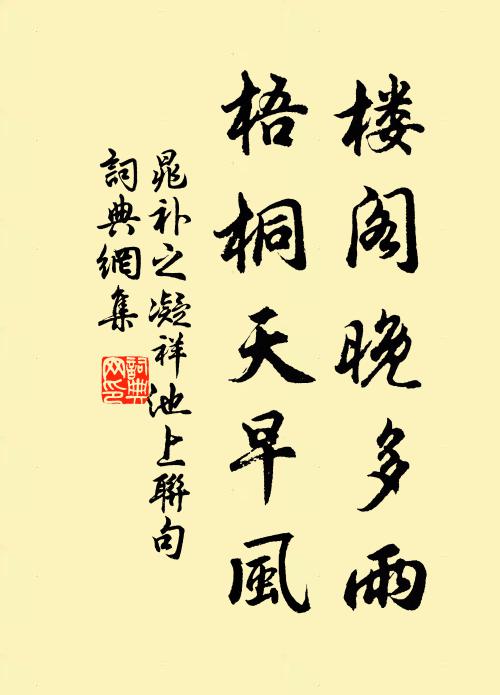 楼阁晚多雨
梧桐天早風
晁补之凝祥池上聯句
詞典網集
詞典網印